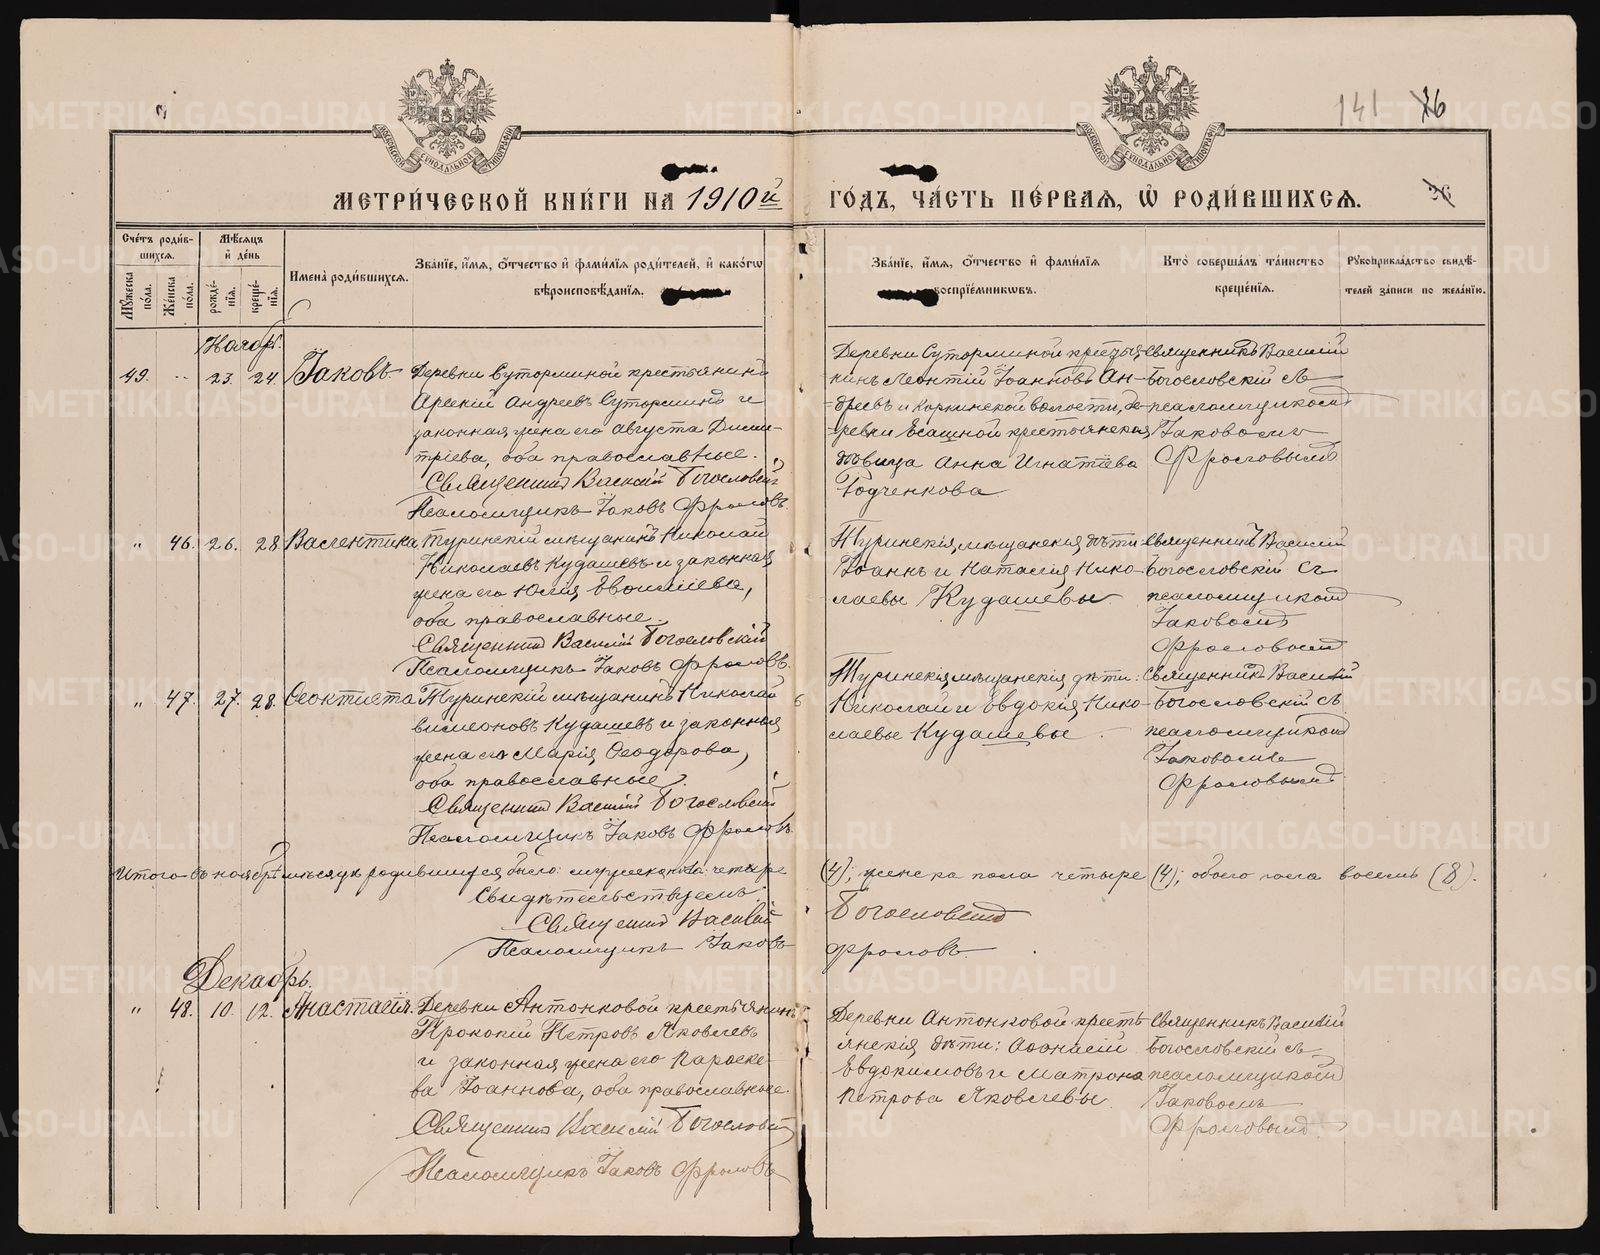 141 26
МЕТРИ́ЧЕСКОЙ КНИ́ГИ НА 1910й ГО́ДЪ, ЧА́СТЬ ПЕ́РВАѦ, Ѡ҆ РОДИ́ВШИХСѦ.
26
Сче́тъ роди́в-
шихсѧ.
Мѹ́жеска по́ла.
Же́нска по́ла.
Мѣ́сѧцъ
и҆ де́нь
рожде́-
нїѧ.
креще́-
нїѧ.
И҆мена̀ роди́вшихсѧ.
Зва́нїе, и҆́мѧ, ѻ҆́тчество и҆ фами́лїѧ роди́телей, и҆ како́гѡ
вѣроисповѣ́данїѧ.
Зва́нїе, и҆́мѧ, ѻ҆́тчество и҆ фами́лїѧ
воспрїе́мникѡвъ.
Кто̀ соверша́лъ та́инство
креще́нїѧ.
Рꙋкоприкла́дство свидѣ́-
телей за́писи по жела́нїю.
Ноябрь.
49. 23. 24. Іаковъ
Деревни Суторминой крестьянинъ
Арсеній Андреевъ Суторминъ и
законная жена его Августа Дими-
тріева, оба православные.
Священникъ Василій Богословскій
Псаломщикъ Іаковъ Фроловъ.
Деревни Суторминой крестья-
нинъ Леонтій Іоанновъ Ан-
дреевъ и Коркинской волости, де-
ревни Ясашной крестьянская
дѣвица Анна Игнатіева
Годченкова
Священникъ Василій
Богословскій съ
псаломщикомъ
Іаковомъ
Фроловымъ
" 46. 26. 28. Валентина
Туринскій мѣщанинъ Николай
Николаевъ Кудашевъ и законная
жена его Юлія Евфиміева,
оба православные.
Священникъ Василій Богословскій
Псаломщикъ Іаковъ Фроловъ.
Туринскія мѣщанскія дѣти:
Іоаннъ и Наталія Нико-
лаевы Кудашевы
Священникъ Василій
Богословскій съ
псаломщикомъ
Іаковомъ
Фроловымъ
" 47. 27. 28. Ѳеоктиста
Туринскій мѣщанинъ Николай
Кудашевъ и законная
жена его Марія Ѳеодорова,
оба православные.
Священникъ Василій Богословскій
Псаломщикъ Іаковъ Фроловъ.
Туринскія мѣщанскія дѣти:
Николай и Евдокія Нико-
лаевы Кудашевы
Священникъ Василій
Богословскій съ
псаломщикомъ
Іаковомъ
Фроловымъ
Итого въ ноябрѣ мѣсяцѣ родившихся было: мужеска пола четыре (4); женска пола четыре (4); обоего пола восемь (8).
Свидѣтельствуемъ:
Священникъ Василій Богословскій
Псаломщикъ Іаковъ Фроловъ.
Декабрь.
" 48. 10. 12. Анастасія.
Деревни Антонковой крестьянинъ
Прокопій Петровъ Яковлевъ
и законная жена его Параске-
ва Іоаннова, оба православные.
Священникъ Василій Богословскій
Псаломщикъ Іаковъ Фроловъ
Деревни Антонковой кресть-
янскія дѣти: Аѳанасій
Евдокимовъ и Матрона
Петрова Яковлевы
Священникъ Василій
Богословскій съ
псаломщикомъ
Іаковомъ
Фроловымъ
METRIKI.GASO-URAL.RU